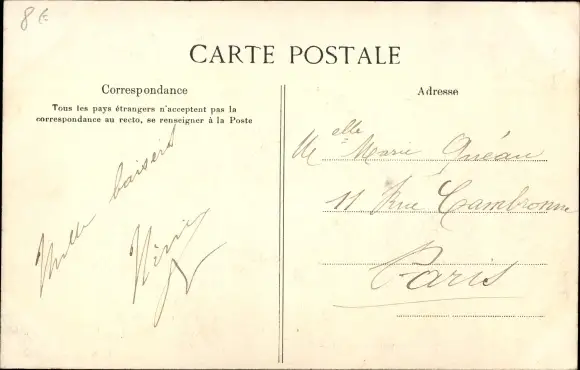 8€
CARTE POSTALE
Correspondance
Tous les pays étrangers n'acceptent pas la
correspondance au recto, se renseigner à la Poste
Mille baisers
Adresse
Melle Marie Quéau
11 Rue Cambronne
Paris